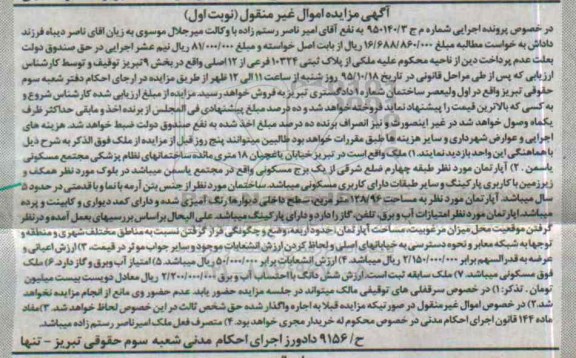 آگهی مزایده اموال غیر منقول (نوبت اول)
در خصوص پرونده اجرایی شماره م ج ۹۵۰۱۴۰/۳ به نفع آقای امیر ناصر رستم زاده با وکالت میرجلال موسوی به زیان آقای ناصر دیباه فرزند
داداش به خواسته مطالبه مبلغ ۱۶/۶۸۸/۸۶۰/۰۰۰ ریال از بابت اصل خواسته و مبلغ ۸۱/۰۰۰/۰۰۰ ریال نیم عشر اجرایی در حق صندوق دولت
بعلت عدم پرداخت دین از ناحیه محکوم علیه ملکی از پلاک ثبتی ۱۰۳۲۴ فرعی از ۱۲ اصلی واقع در بخش ۹ تبریز توقیف و توسط کارشناس
ارزیابی که پس از طی مراحل قانونی در تاریخ ۹۵/۱۰/۱۸ روز شنبه از ساعت ۱۱ الی ۱۲ ظهر از طریق مزایده در اجرای احکام دفتر شعبه سوم
حقوقی تبریز واقع در اول ولیعصر ساختمان شماره ۹ دادگستری تبریز به فروش خواهد رسید. مزایده از مبلغ ارزیابی شده کارشناس شروع و
به کسی که بالاترین قیمت را پیشنهاد نماید فروخته خواهد شد و ده درصد مبلغ پیشنهادی فی المجلس از برنده اخذ و مابقی حداکثر ظرف
یکماه وصول خواهد شد. در غیر اینصورت و نیز انصراف برنده ده درصد مبلغ اخذ شده به نفع صندوق دولت ضبط خواهد شد. هزینه های
اجرایی و عوارض شهرداری و سایر هزینه ها طبق مقررات خواهد بود طالبین میتوانند پنج روز قبل از مزایده از ملک فوق الذکر به شرح ذیل
با هماهنگی این واحد بازدید نمایند. ۱) ملک واقع است در تبریز خیابان باغچبان ۱۸ متری مانده ساختمانهای نظام پزشکی مجتمع مسکونی
یاسمن. ۲) آپارتمان مورد نظر طبقه چهارم ضلع شرقی از یک برج مسکونی واقع در مجتمع یاسمن میباشد در بلوک مورد نظر همکف و
زیرزمین با کاربری پارکینگ و سایر طبقات دارای کاربری مسکونی میباشد. ساختمان مورد نظر از جنس بتن آرمه با نما و با قدمتی در حدود ۵
سال میباشد. آپارتمان مورد نظر به مساحت ۱۲۸/۹۶ متر مربع، سطح داخلی دیوارها رنگ آمیزی شده و دارای کمد دیواری و کابینت و پرده
میباشد. آپارتمان مورد نظر امتیازات آب و برق، تلفن، گاز را دارد و دارای پارکینگ میباشد. علی الحال براساس بررسیهای بعمل آمده و درنظر
گرفتن موقعیت محل میزان مرغوبیت، مساحت آپارتمان، حدود اربعه، وضع و چگونگی قرار گرفتن نسبت به مناطق مختلف شهری و منطقه و
توجها به شبکه معابر و نحوه دسترسی به خیابانهای اصلی و لحاظ کردن ارزش انشعابات موجود و سایر جوانب موثر در قیمت، ۳) ارزش اعیانی و
عرصه به قدرالسهم برابر ۲/۱۵۰/۰۰۰/۰۰۰ ریال میباشد. ۴) ارزش انشعابات برابر ۵۰/۰۰۰/۰۰۰ ریال میباشد. ۵) امتیاز آب وبرق و گاز دارد. ۶) ملک
فوق مسکونی میباشد. ۷) ملک سابقه ثبت است. ارزش شش دانگ با احتساب آب و برق ۲/۲۰۰/۰۰۰/۰۰۰ ریال معادل دویست بیست میلیون
تومان. تذکر: ۱) در خصوص سرقفلی های توقیفی مالک میتواند در جلسه مزایده حضور یابد. عدم حضور وی مانع از انجام مزایده نخواهد
شد. ۲) در خصوص اموال غیر منقول در صورتیکه مزایده قبلا به اجاره واگذار شده حق شخص ثالث در این خصوص لحاظ خواهد شد. ۳) مفاد
ماده ۱۴۴ قانون اجرای احکام مدنی در خصوص محکوم له خریدار مجری خواهد بود. ۴) متصرف فعل ملک امیر ناصر رستم زاده میباشد.
ح/ ۹۱۵۶ دادورز اجرای احکام مدنی شعبه سوم حقوقی تبریز - تنها